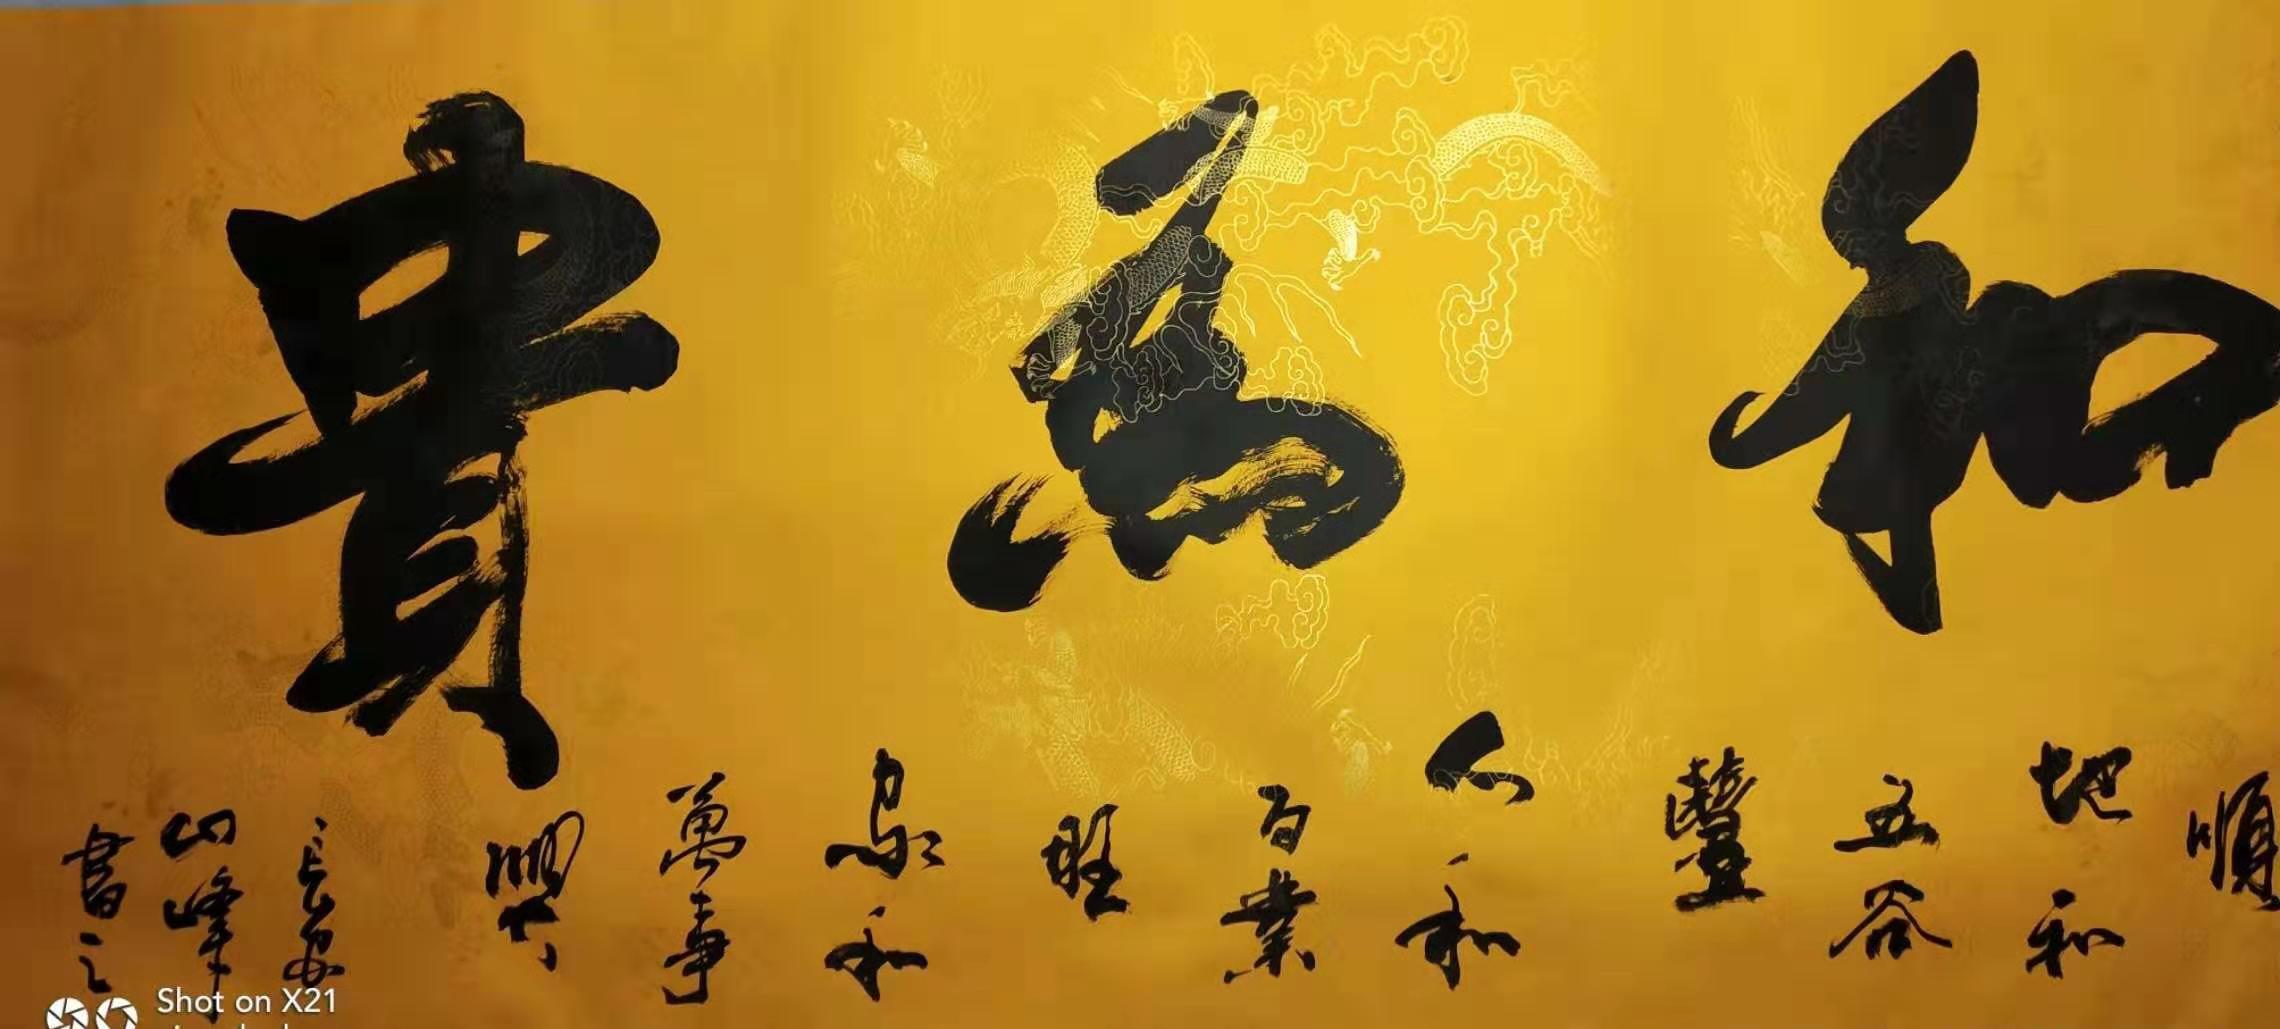 和為貴
順
地和
五谷
豐
人和
百業
旺
家和
萬事
興
長安
山峰
書之
Shot on X21